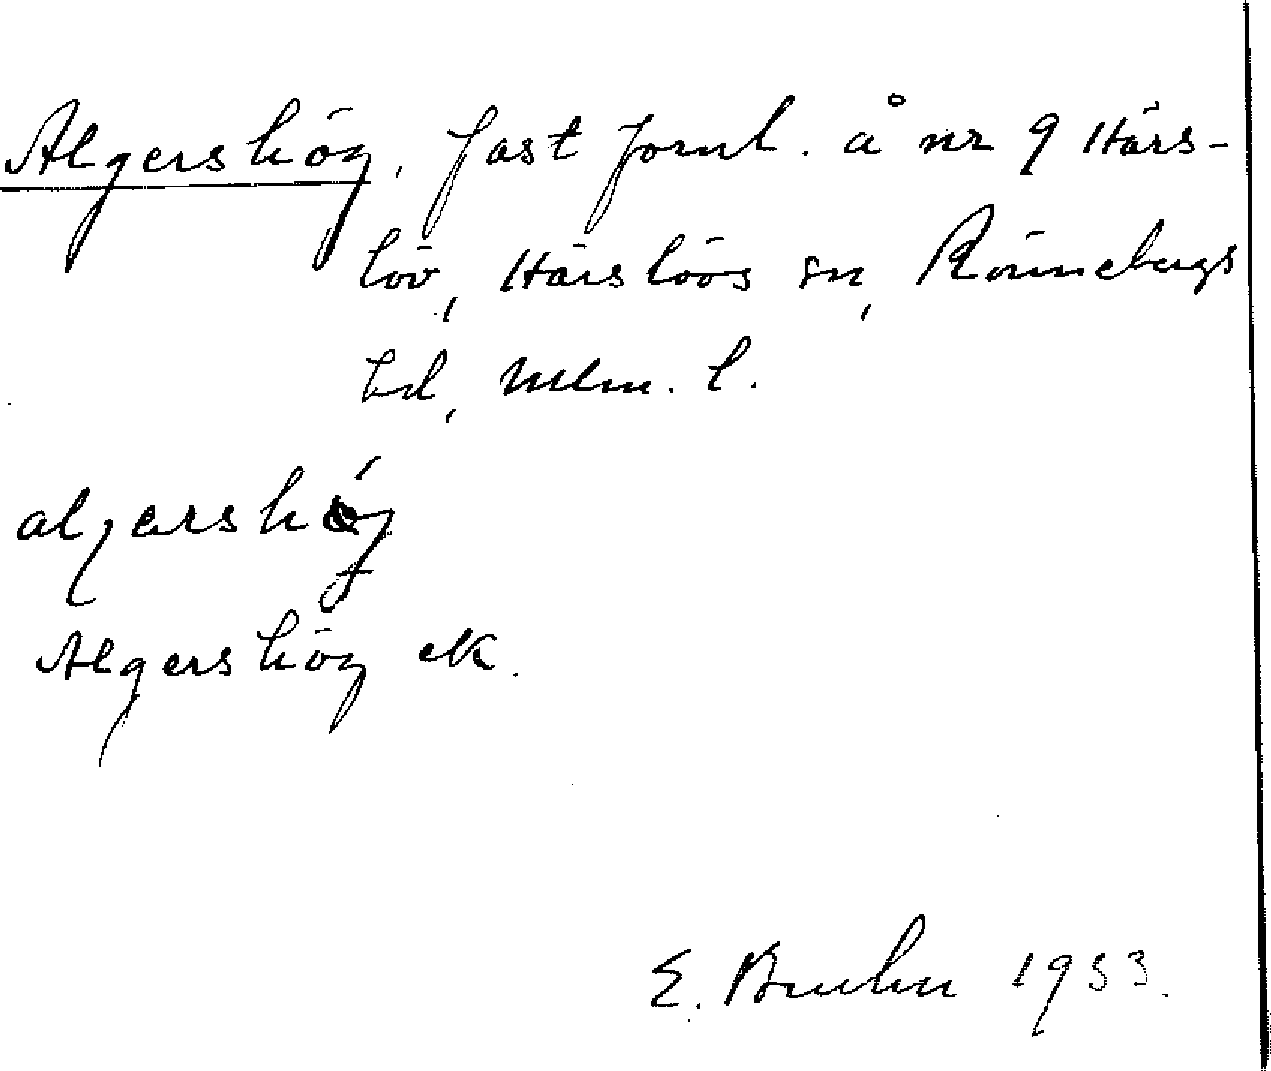 Algershög, fast fornl. å nr 9 Härs-
löv, Härslövs sn, Rönnebergs
hd, Mlm. l.
Algershög ek.
E. Bruhn 1933.